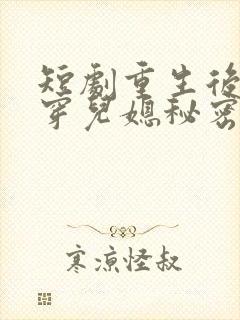 短劇重生後
穿兒媳秘密
寒涼怪叔